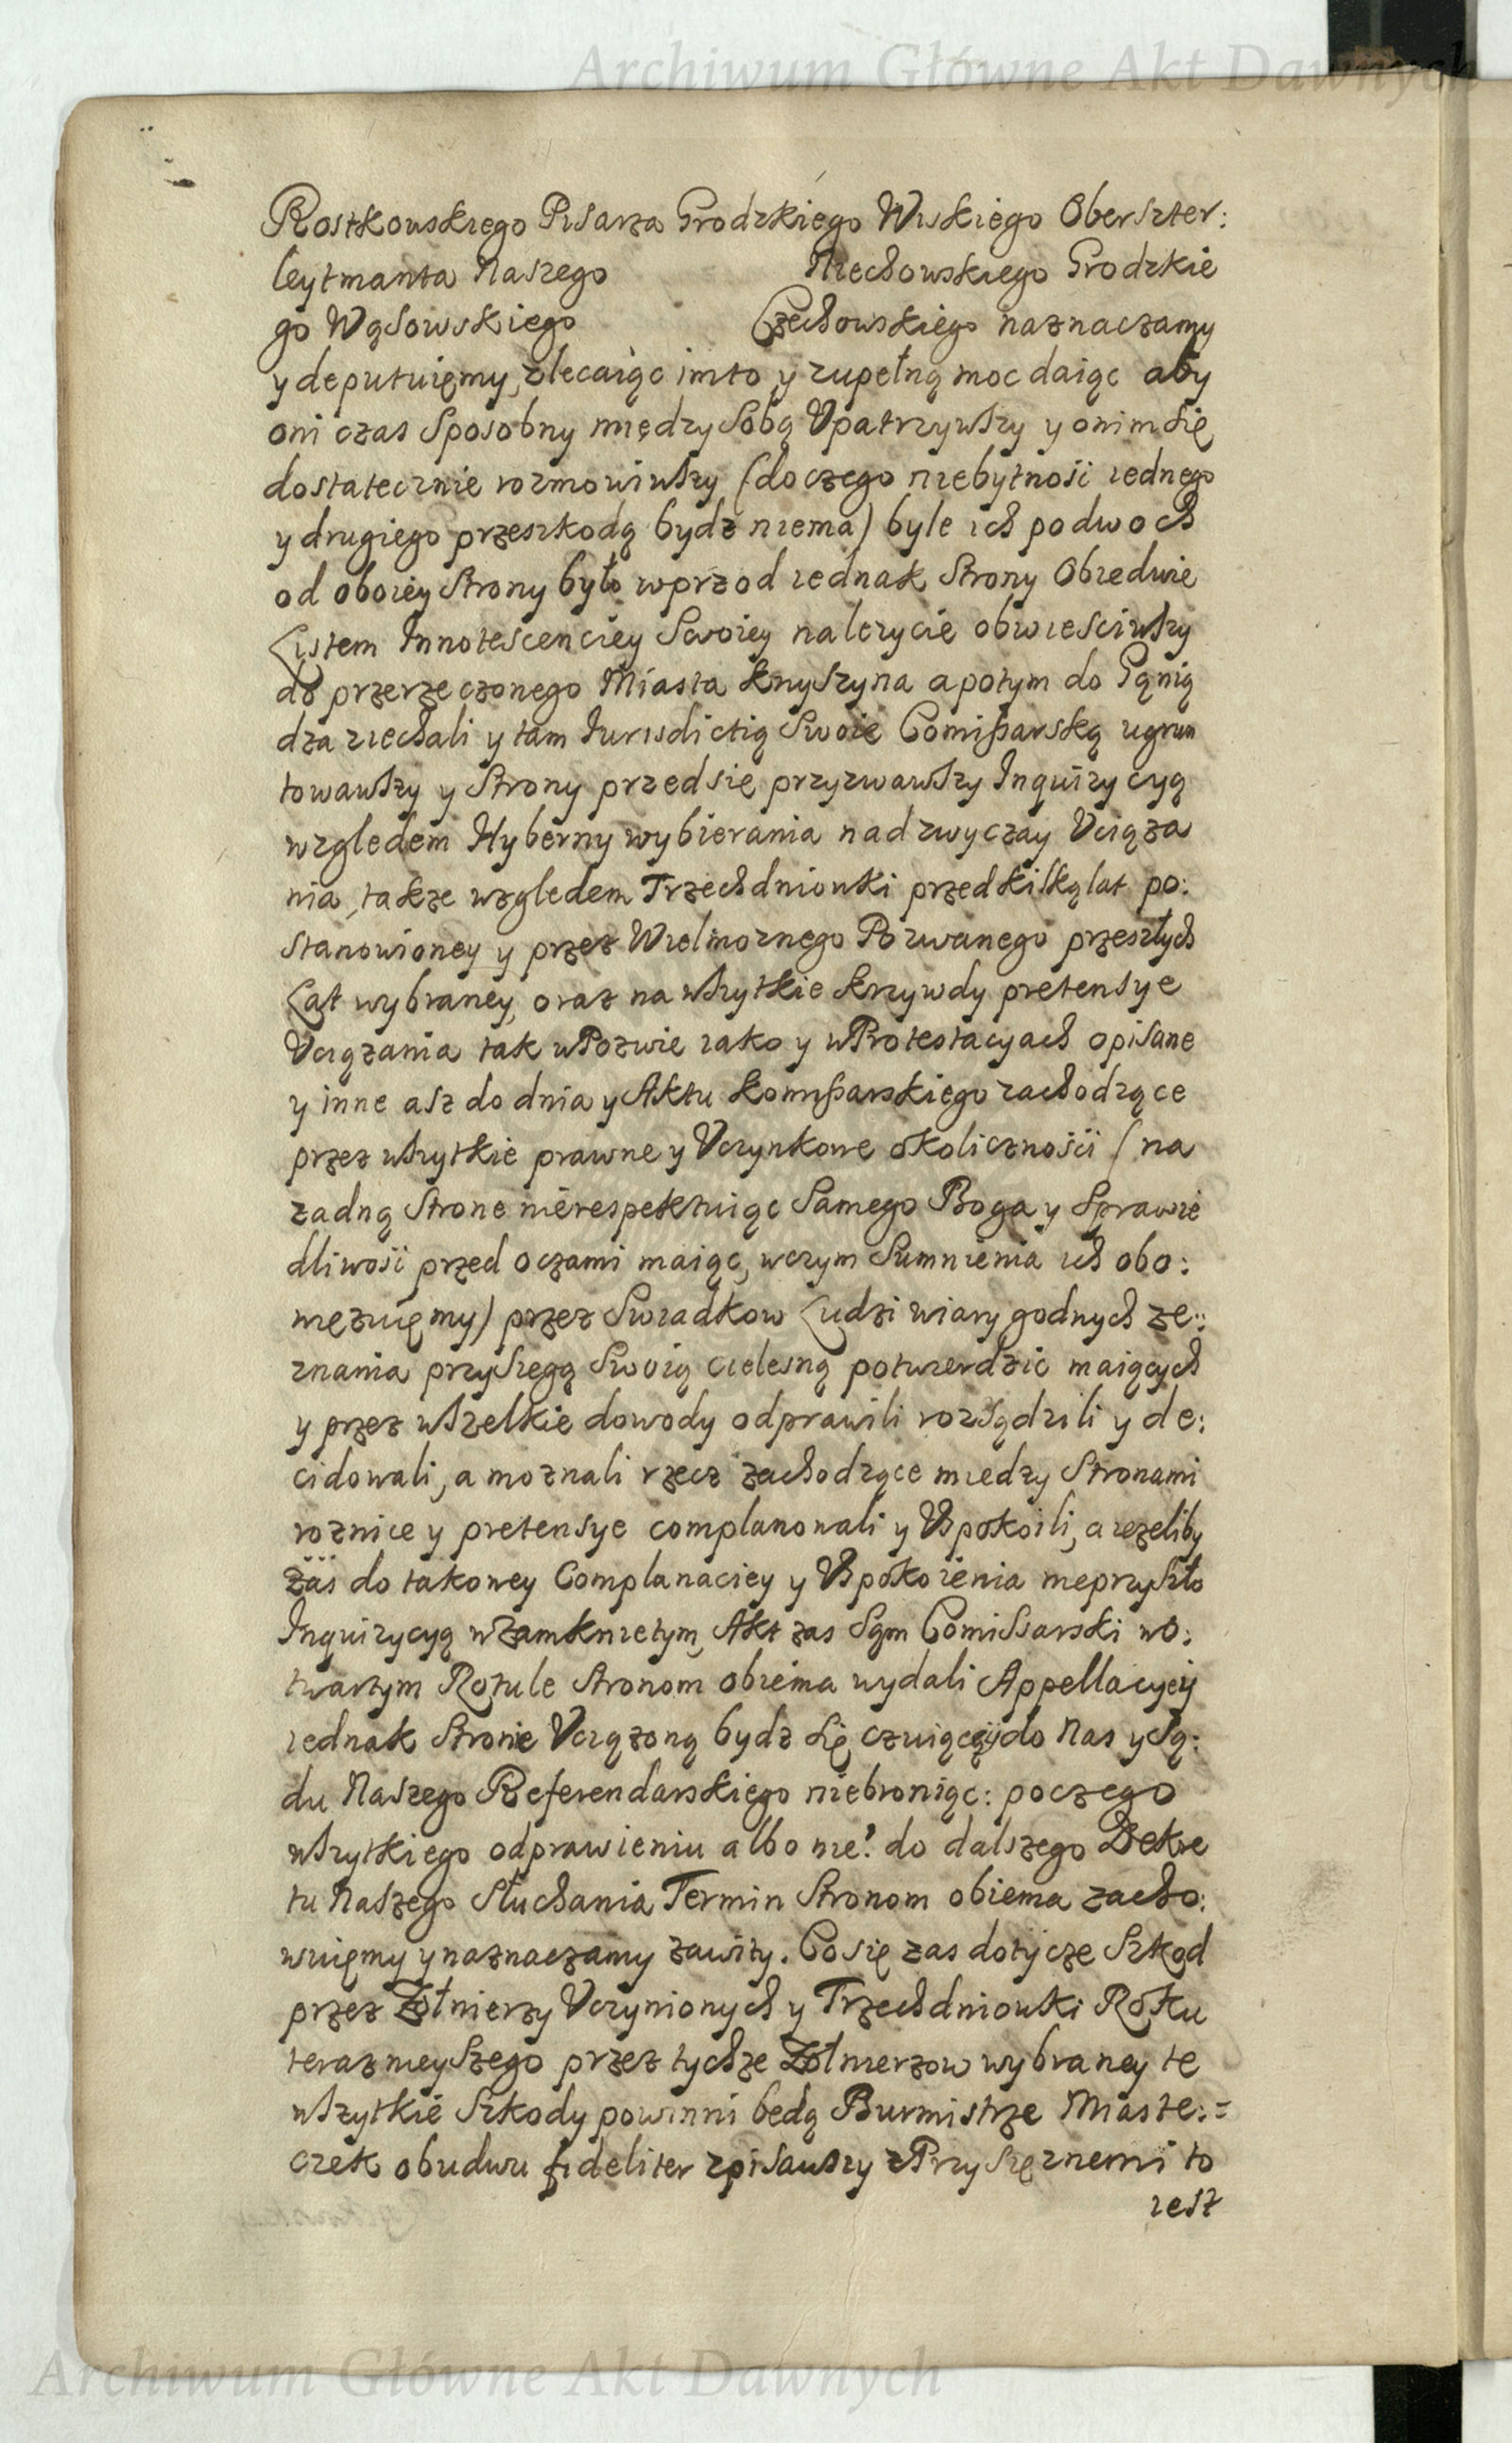 Archiwum Główne Akt Dawnych
Rostkowskiego Pisarza Grodzkiego Wiskiego Oberszter:
leytmanta Naszego Niechowskiego Grodzkie
go Wąsowskiego Czechowskiego naznaczamy
y deputuięmy, zlecaiąc im to y zupełną moc daiąc aby
oni czas Sposobny między Sobą Vpatrzywszy y onim się
dostatecznie rozmowiwszy (do czego niebytnośi iednego
y drugiego przeszkodą bydz niema) byle ich podwoch
od oboiey Strony było wprzod iednak Strony Obiedwie
Listem Innotescenciey Swoiey nalezycie obwiesciwszy
do przerzeczonego Miasta Knyszyna apotym do Gąnią
dza ziechali y tam Iurisdictią Swoie Comißarską ugrun
towawszy y Strony przed się przyzwawszy Inquizycyą
względem Hyberny wybierania nad zwyczay Vciąza
nia, takze względem Trzechdniowki przed kilką lat po:
Stanowioney y przez Wielmoznego Pozwanego przeszłych
Lat wybraney, oraz na wszytkie krzywdy pretensye
Vciązania tak wPozwie iako y wProtestacyach opisane
y inne asz do dnia y Aktu komißarskiego zachodzące
przez wszytkie prawne y Vczynkowe okolicznośii (na
zadną Strone nierespektuiąc Samego Boga y Sprawie
dliwośi przed oczami maiąc, wczym Sumnienia ich obo:
więzuięmy) przez Swiadkow Ludzi wiary godnych ze:
znania przysięgą Swoią cielesną potwierdzic maiących
y przez wszelkie dowody odprawili rozsądzili y de:
cidowali, a moznali rzecz zachodzące miedzy Stronami
roznice y pretensye complanowali y Vspokoili, a iezeliby
zas do takowey Complanaciey y Vspokoienia nieprzyszło
Inquizycyą wZamknietym, Akt zas Sąm Comissarski wo:
twartym Rotule Stronom obiema wydali Appellacyey
iednak Stronie Vciązoną bydz się czuiącey do Nas y Są:
du Naszego Referendarskiego niebroniąc: poczego
wszytkiego odprawieniu albo nie? do dalszego Dekre
tu Naszego Słuchania Termin Stronom obiema zacho:
wuięmy y naznaczamy zawity. Co się zas dotycze Szkod
przez Zołnierzy Vczynionych y Trzechdniowki Roku
teraznieyszego przez tychze Zołnierzow wybraney te
wszytkie Szkody powinni będą Burmistrze Miaste:
czek obudwu fideliter zpisawszy zPrzysięznemi to
iest
Archiwum Główne Akt Dawnych